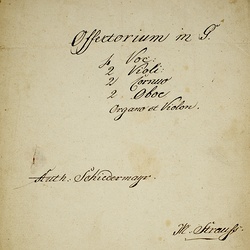 Offertorium in G.
4 Voc:
2 Violi:
2 Cornuo
2 Oboe
Organo et Violon.
Auth. Schiedermayr.
M. Strauss.